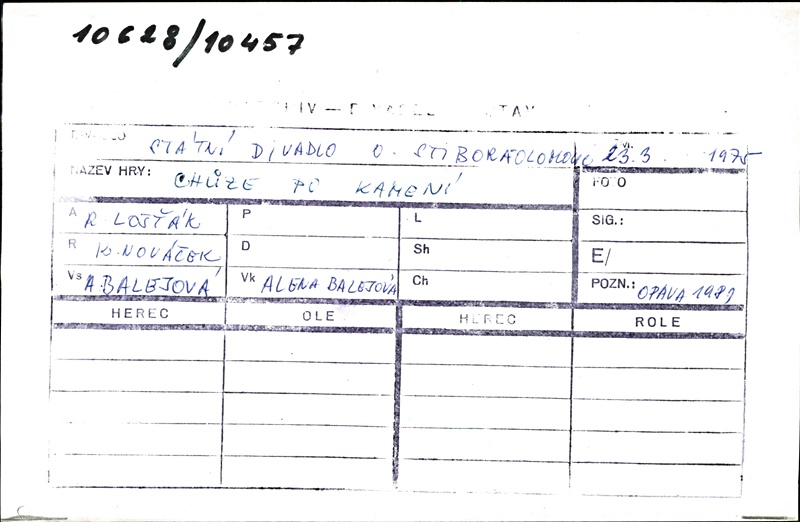 10628/10457
DIVADLO STÁTNÍ DIVADLO O. STIBORA OLOMOUC 23.3. 1975
NÁZEV HRY: CHŮZE PO KAMENÍ FOTO
A R. LOŠŤÁK P L SIG.:
R K. NOVÁČEK D Sh E/
Vs A. BALEJOVÁ Vk ALENA BALEJOVÁ Ch POZN.: OPAVA
HEREC OLE HEREC ROLE